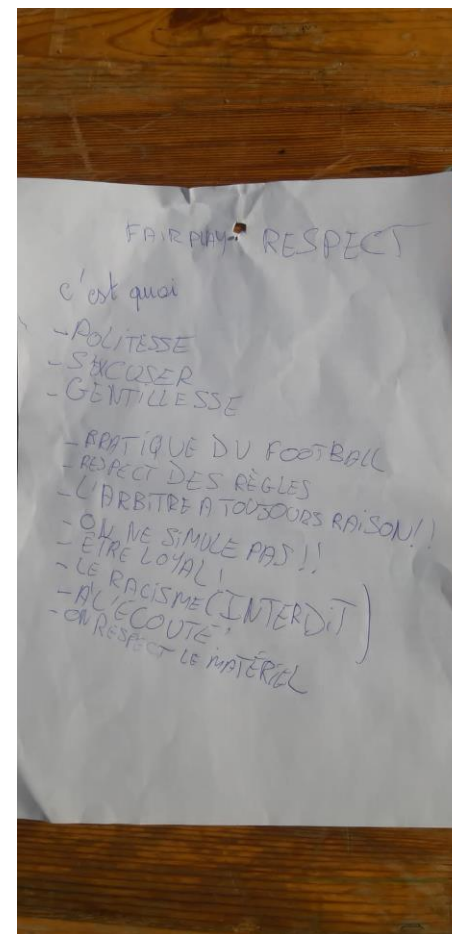 FAIRPLAY RESPECT
c'est quoi
- POLITESSE
- S'EXCUSER
- GENTILLESSE
- PRATIQUE DU FOOTBALL
- RESPECT DES RÈGLES
- L'ARBITRE A TOUJOURS RAISON!!
- ON NE SIMULE PAS!!
- ÊTRE LOYAL!
- LE RACISME (INTERDIT)
- A L'ÉCOUTE
- ON RESPECT LE MATÉRIEL